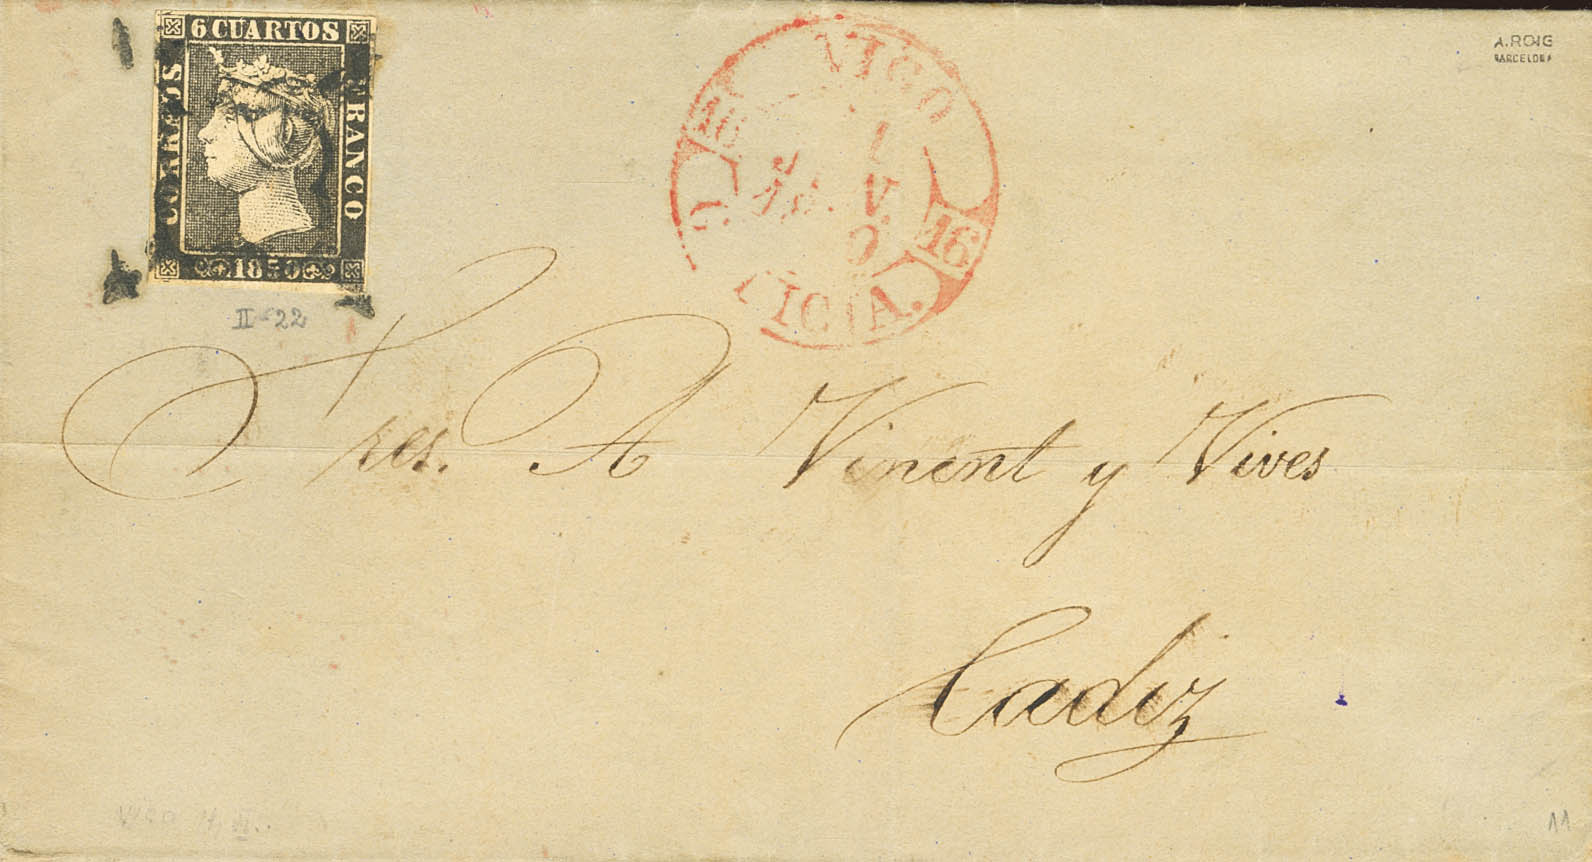 6 CUARTOS
CORREOS
FRANCO
1850
II-22
VIGO
16
16
ICIA.
A. ROIG
BARCELONA
Sres. A Vinent y Vives
Cadiz
VIGO
11